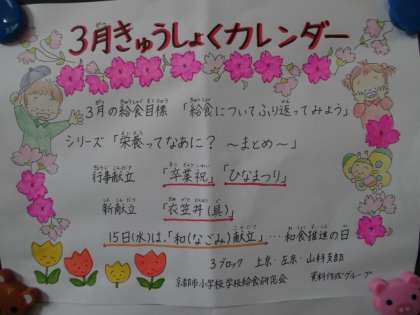 3月きゅうしょくカレンダー
3月の給食目標 「給食についてふり返ってみよう」
シリーズ「栄養ってなあに? ～まとめ～」
行事献立 「卒業祝」「ひなまつり」
新献立 「衣笠丼(具)」
15日(水)は、「和(なごみ)献立」…和食推進の日
3ブロック 上京・左京・山科支部
京都市小学校学校給食研究会 資料作成グループ